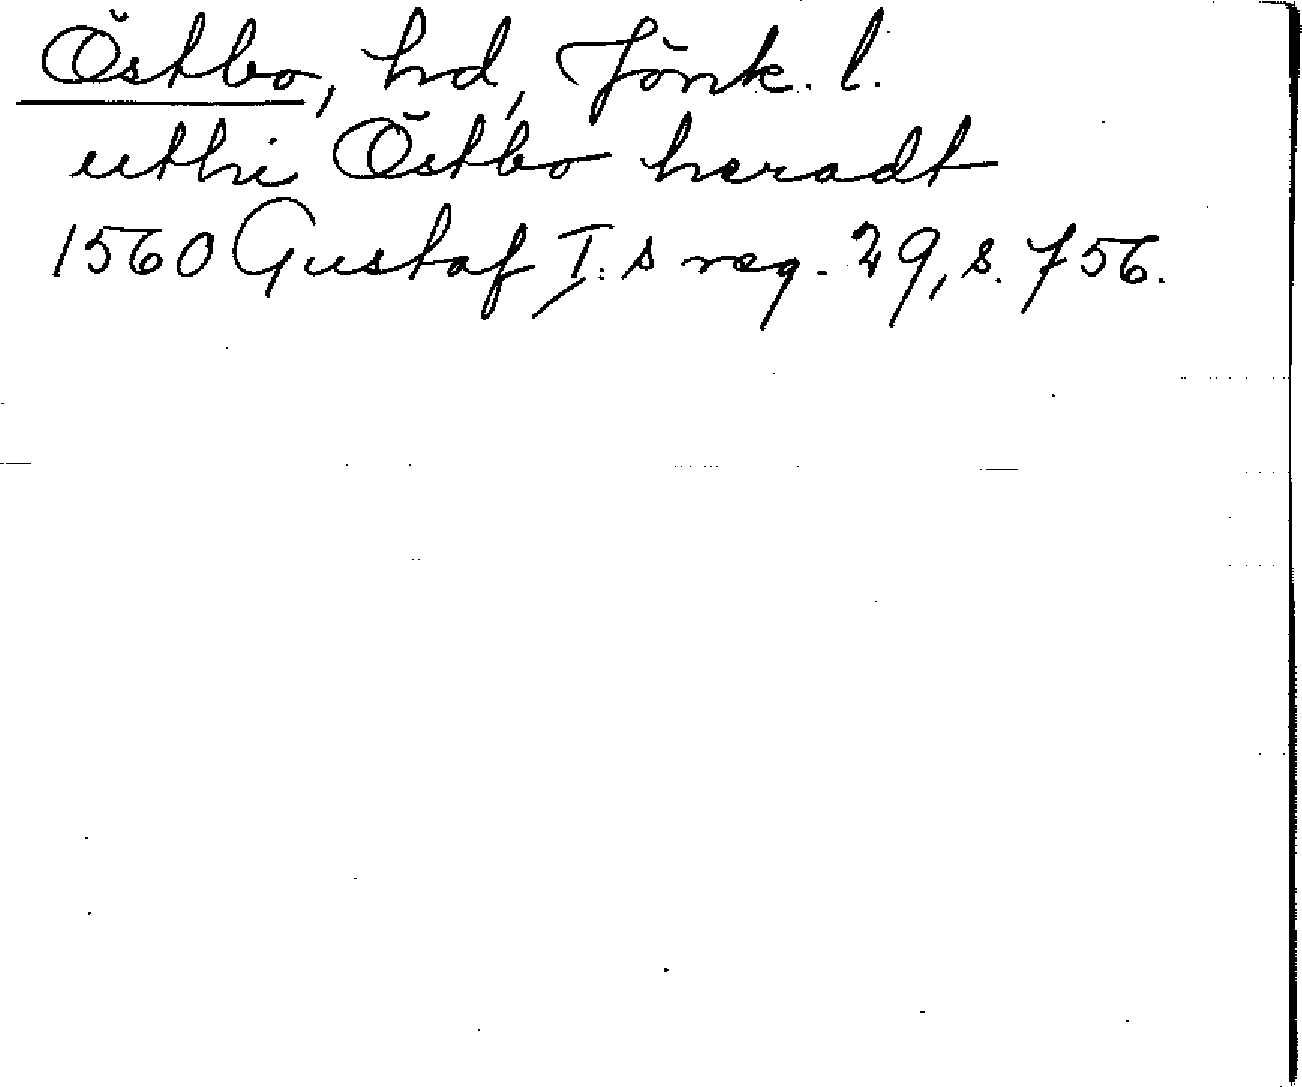 Östbo, hd, Jönk. l.
uthi Östbo heradt
1560 Gustaf I:s reg. 29, s. 756.